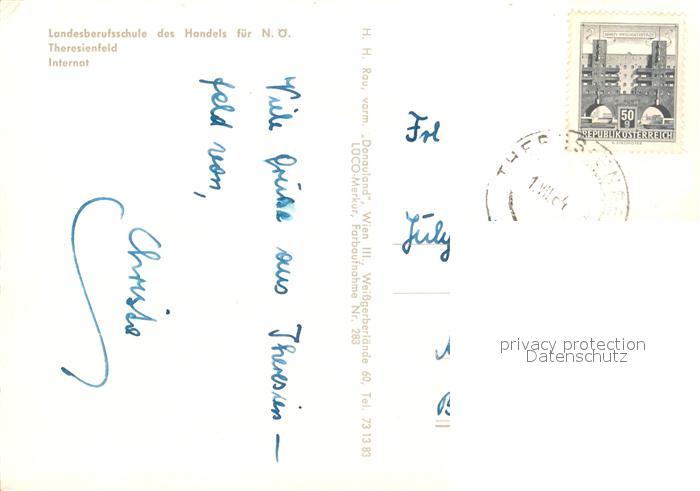 Landesberufsschule des Handels für N. Ö.
Theresienfeld
Internat
Viele Grüße aus Theresien-
feld von,
Christa
H. H. Rau, vorm. „Donauland", Wien III., Weißgerberlände 60, Tel. 73 13 83
LUCO-Merkur, Farbaufnahme Nr. 283
Frl
July
50
g
REPUBLIK ÖSTERREICH
THERESIENFE
1.VII.64
privacy protection
Datenschutz